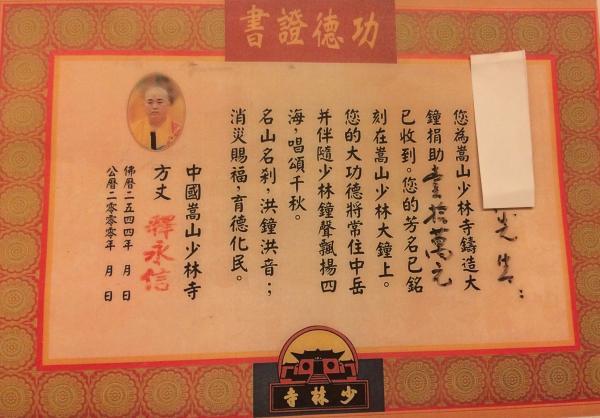 功德證書
先生：
您為嵩山少林寺鑄造大
鐘捐助壹拾萬元
已收到。您的芳名已銘
刻在嵩山少林大鐘上。
您的大功德將常住中岳
并伴隨少林鐘聲飄揚四
海，唱頌千秋。
名山名剎，洪鐘洪音；
消災賜福，育德化民。
中國嵩山少林寺
方丈 釋永信
佛曆二五四四年 月 日
公曆二零零零年 月 日
少林寺